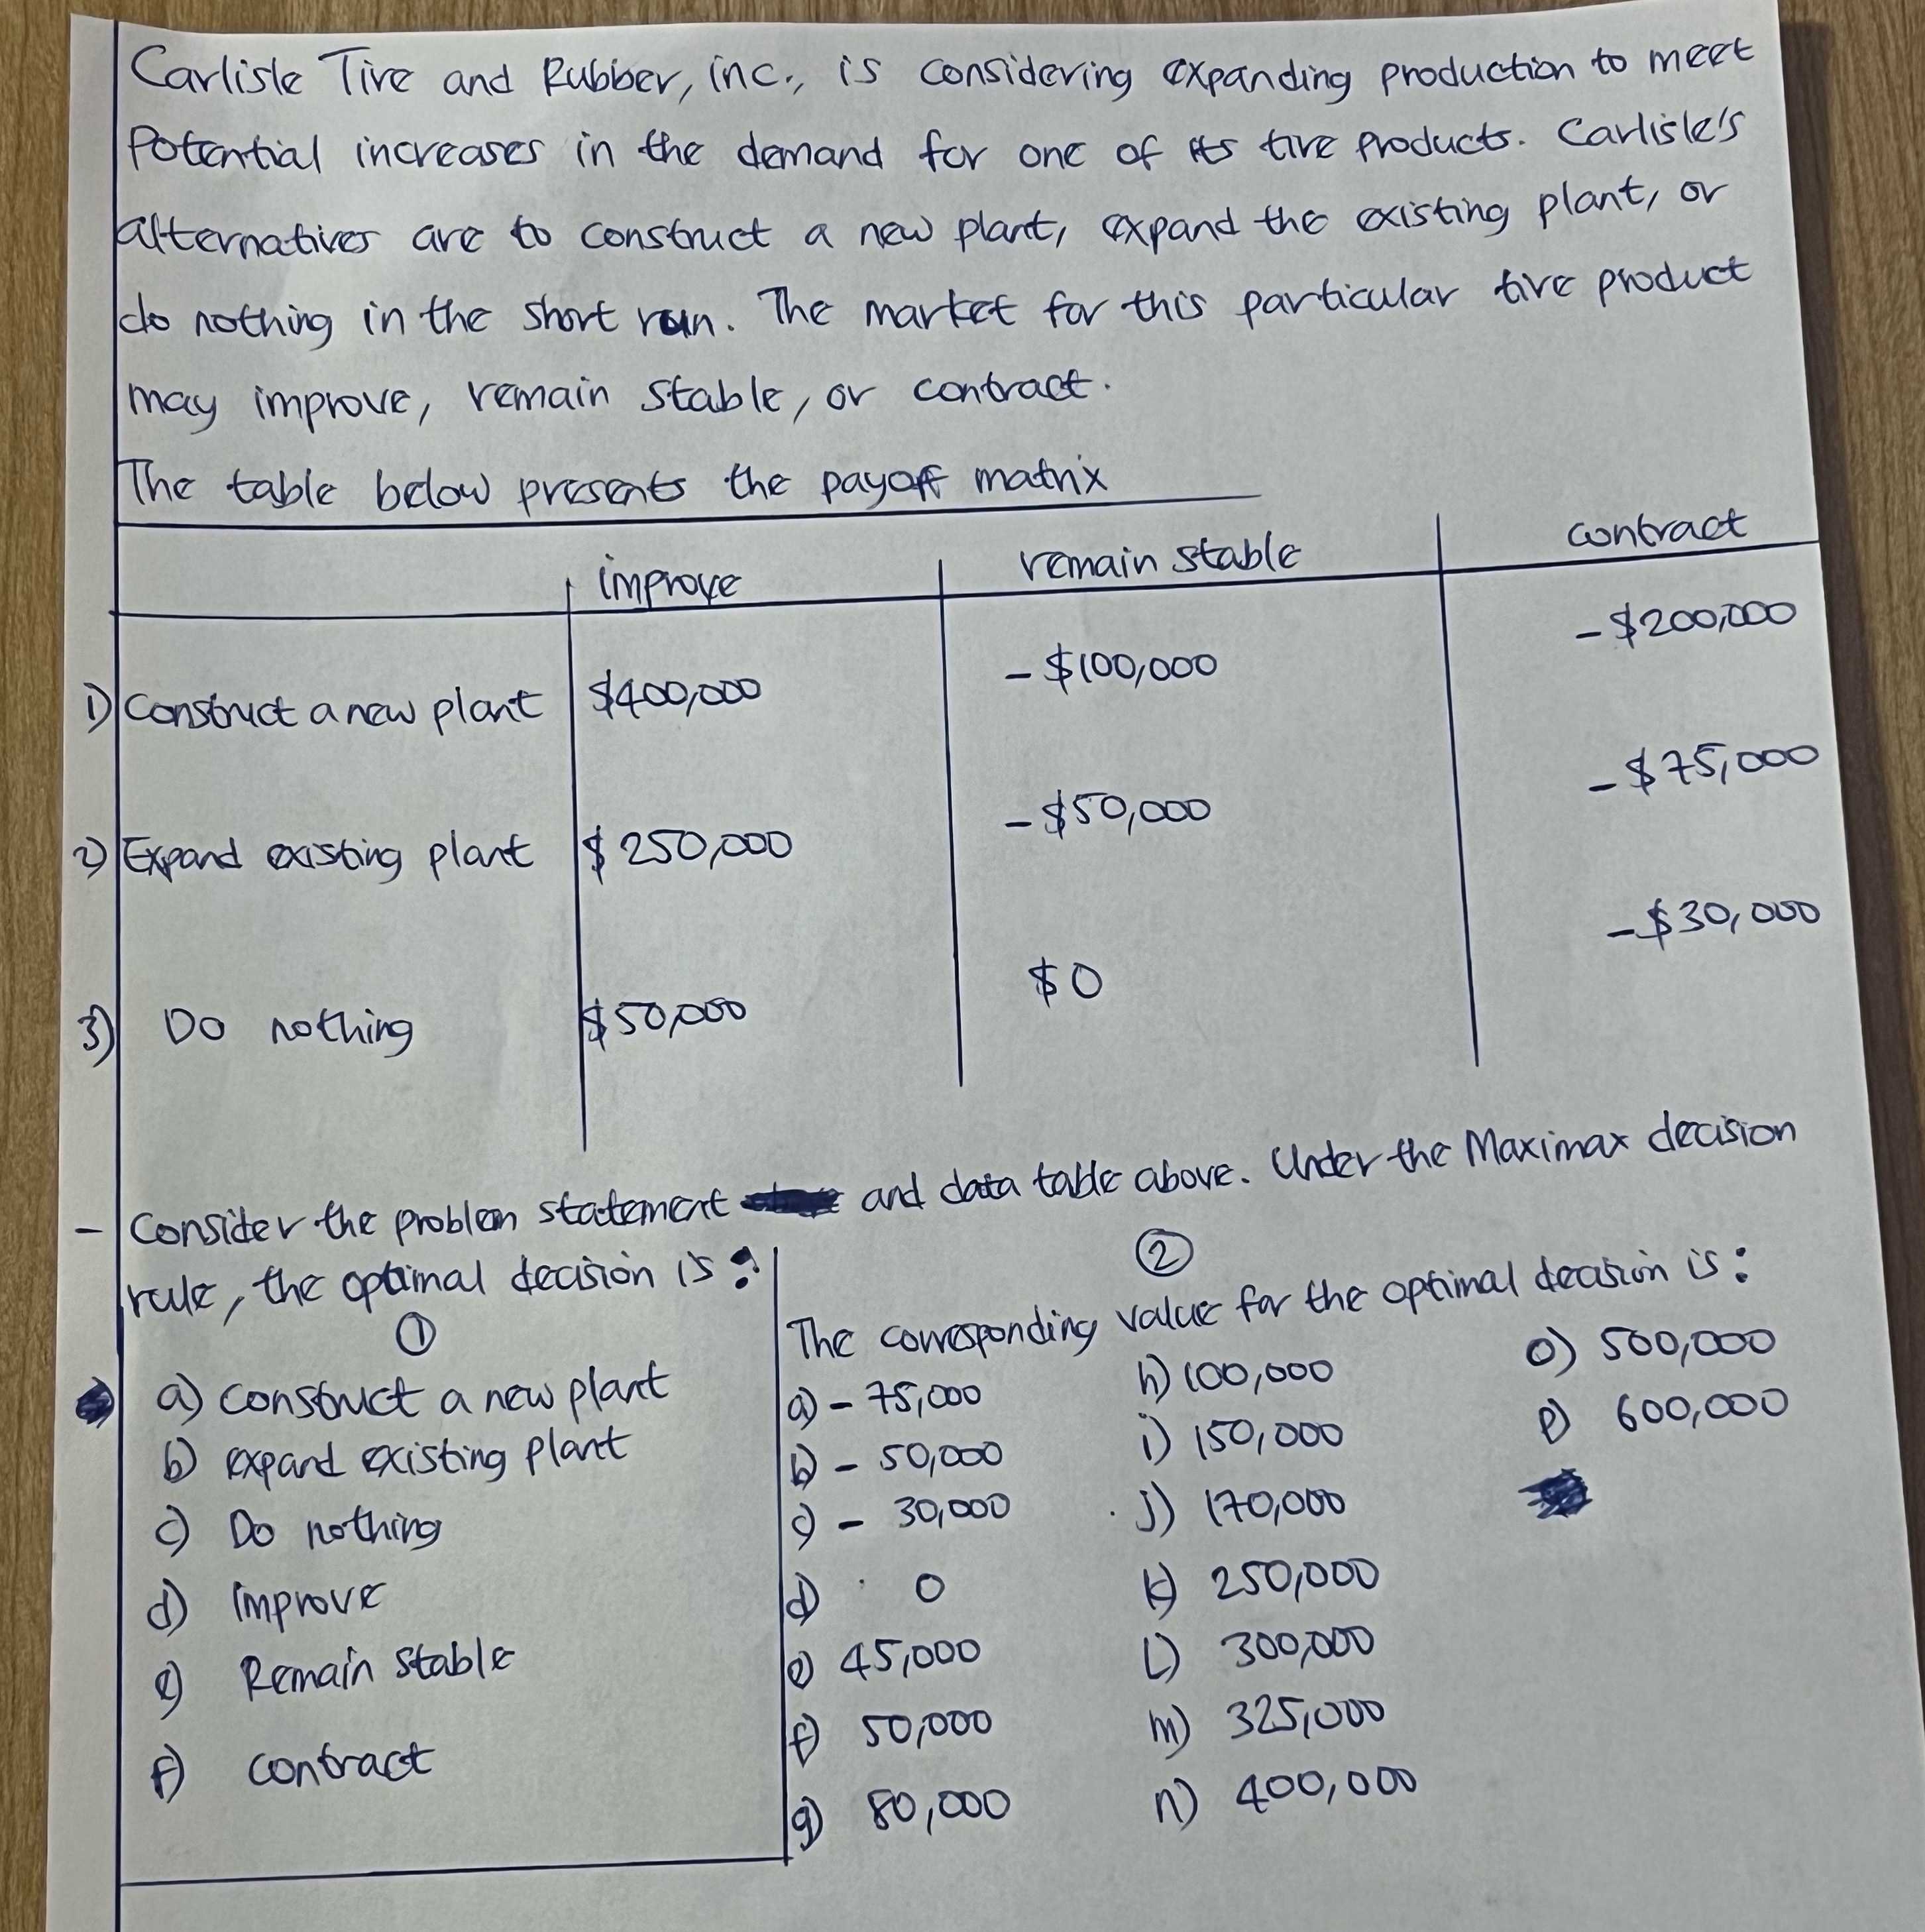 Carlisle Tire and Rubber, inc., is considering expanding production to meet
Potential increases in the demand for one of its tire products. Carlisle's
alternatives are to construct a new plant, expand the existing plant, or
do nothing in the short run. The market for this particular tire product
may improve, remain stable, or contract.
The table below presents the payoff matrix
improve remain stable contract
1) Construct a new plant $400,000 -$100,000 -$200,000
2) Expand existing plant $250,000 -$50,000 -$75,000
3) Do nothing $50,000 $0 -$30,000
- Consider the problem statement and data table above. Under the Maximax decision
rule, the optimal decision is:
①
a) construct a new plant
b) expand existing plant
c) Do nothing
d) improve
e) Remain stable
f) contract
②
The corresponding value for the optimal decision is:
a) - 75,000
b) - 50,000
c) - 30,000
d) 0
e) 45,000
f) 50,000
g) 80,000
h) 100,000
i) 150,000
j) 170,000
k) 250,000
L) 300,000
m) 325,000
n) 400,000
o) 500,000
p) 600,000